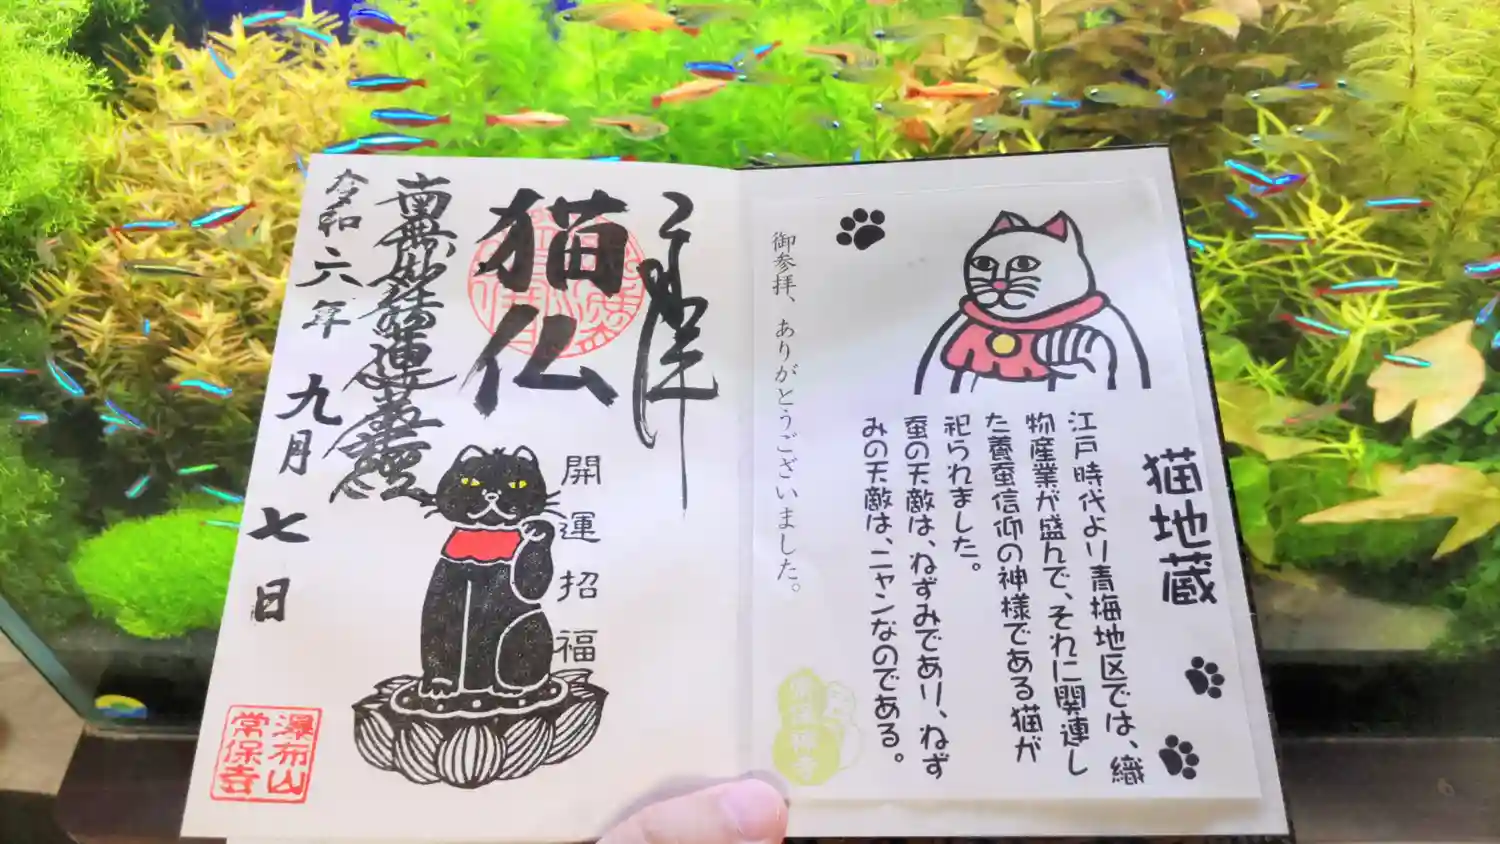 猫地蔵
江戸時代より青梅地区では、織
物産業が盛んで、それに関連し
た養蚕信仰の神様である猫が
祀られました。
蚕の天敵は、ねずみであり、ねず
みの天敵は、ニャンなのである。
御参拝、ありがとうございました。
猫仏
開運招福
南無妙法蓮華経
令和六年 九月 七日
瀑布山
常保寺